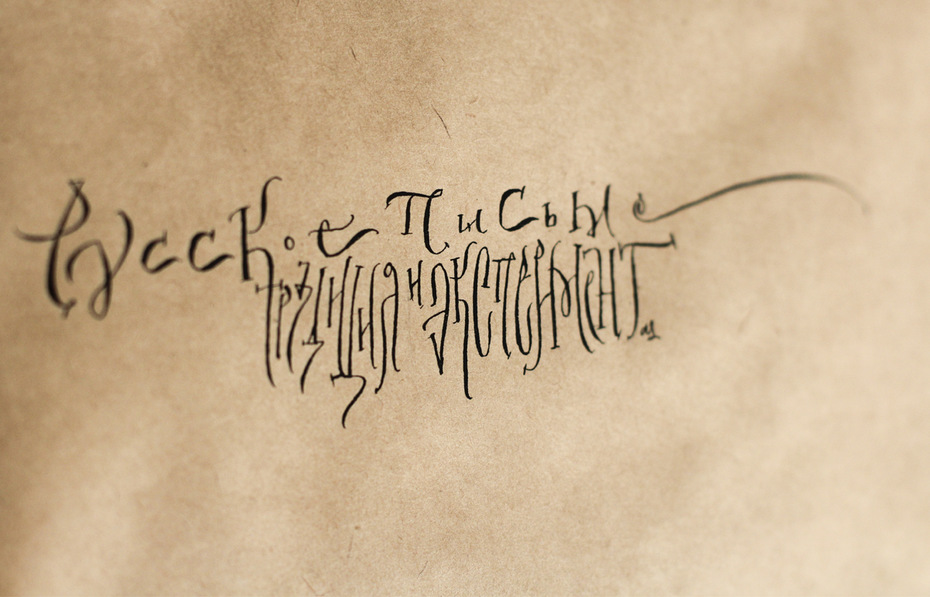 Русское письмо
традиция и эксперимент